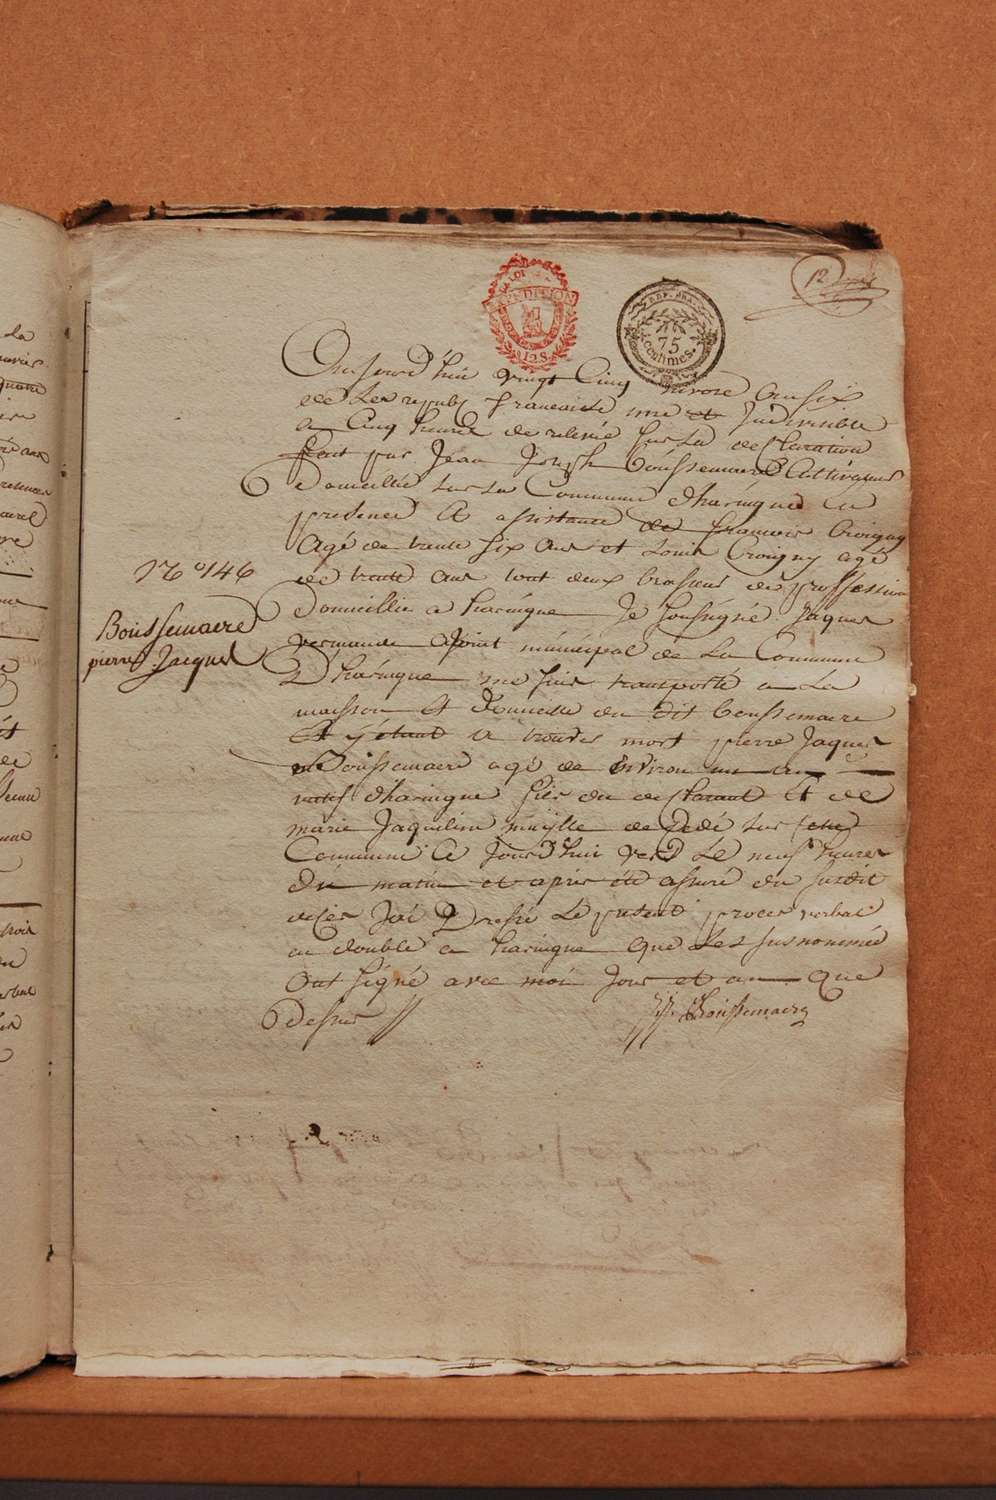 12
EXPEDITION
REP. FRA.
75
centimes
Aujourd'hui vingt Cinq nivose an six
de Le republ francaise une et Indivisible
a Cinq heures de relevée sur La declaration
fait par Jean Joseph Boussemaere Cultivateur
Domicilié sur La Commune d'haringue en
presence & assistance de francois Croigny
Agé de trente six ans et Louis Croigny agé
de trente ans tout deux brasseur de proffession
Domicillié a haringue Je soussigné Jaques
vermande ajoint municipal de La Commune
D'haringue me suis transporté a La
maisson et Domicille du dit boussemaere
et y étant a trouvés mort pierre Jaques
Boussemaere agé de environ un an
natif d'haringue fils du declarant et de
marie Jaqueline de Dedé sur
Commune Ce Jourd'hui vers Le neuf heures
du matin et après été assuré du susdit
deces J'ai Dressé Le present proces verbal
en double a haringue que Les susnommés
ont signé avec moi Jour et an que
dessus
J J Boussemaere
N° 146
Boussemaere
pierre Jacques